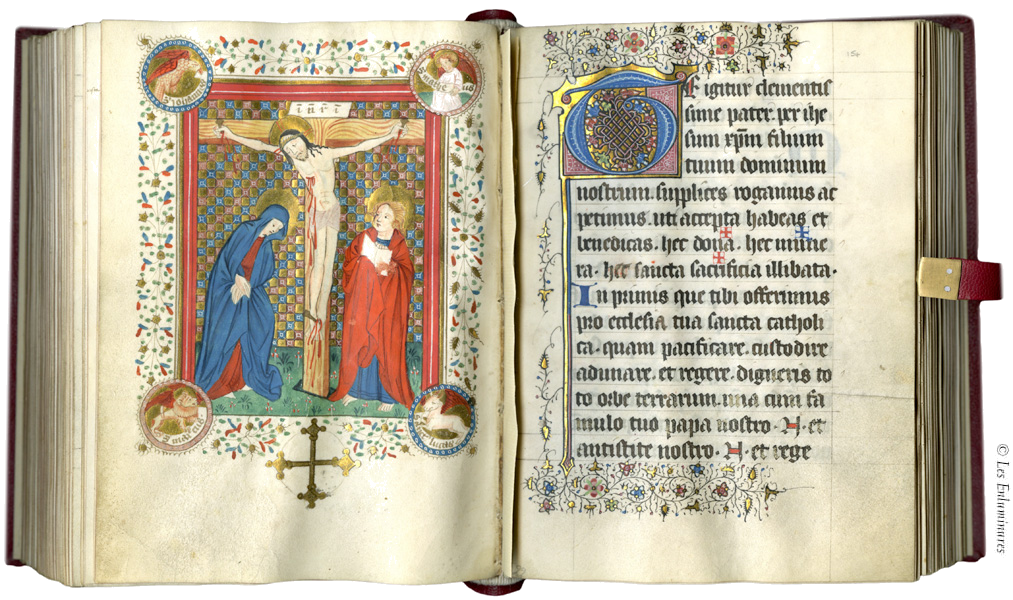 inri
Te igitur clementis
sime pater. per ihe
sum xpm filium
tuum dominum
nostrum. supplices rogamus ac
petimus. uti accepta habeas et
benedicas. hec dona. hec mune
ra. hec sancta sacrificia illibata.
In primis que tibi offerimus
pro ecclesia tua sancta catholi
ca. quam pacificare. custodire
adunare. et regere. digneris to
to orbe terrarum. una cum fa
mulo tuo papa nostro. N. et
antistite nostro. N. et rege
© Les Enluminures